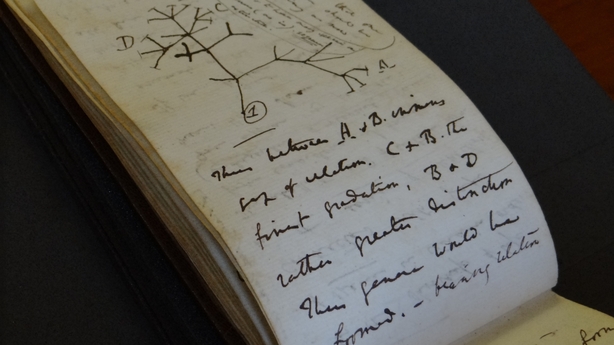 D
C
A
1
Thus between A & B. immens
gap of relation. C & B. the
finest gradation, B & D
rather greater distinction
Thus genera would be
formed. — bearing relation